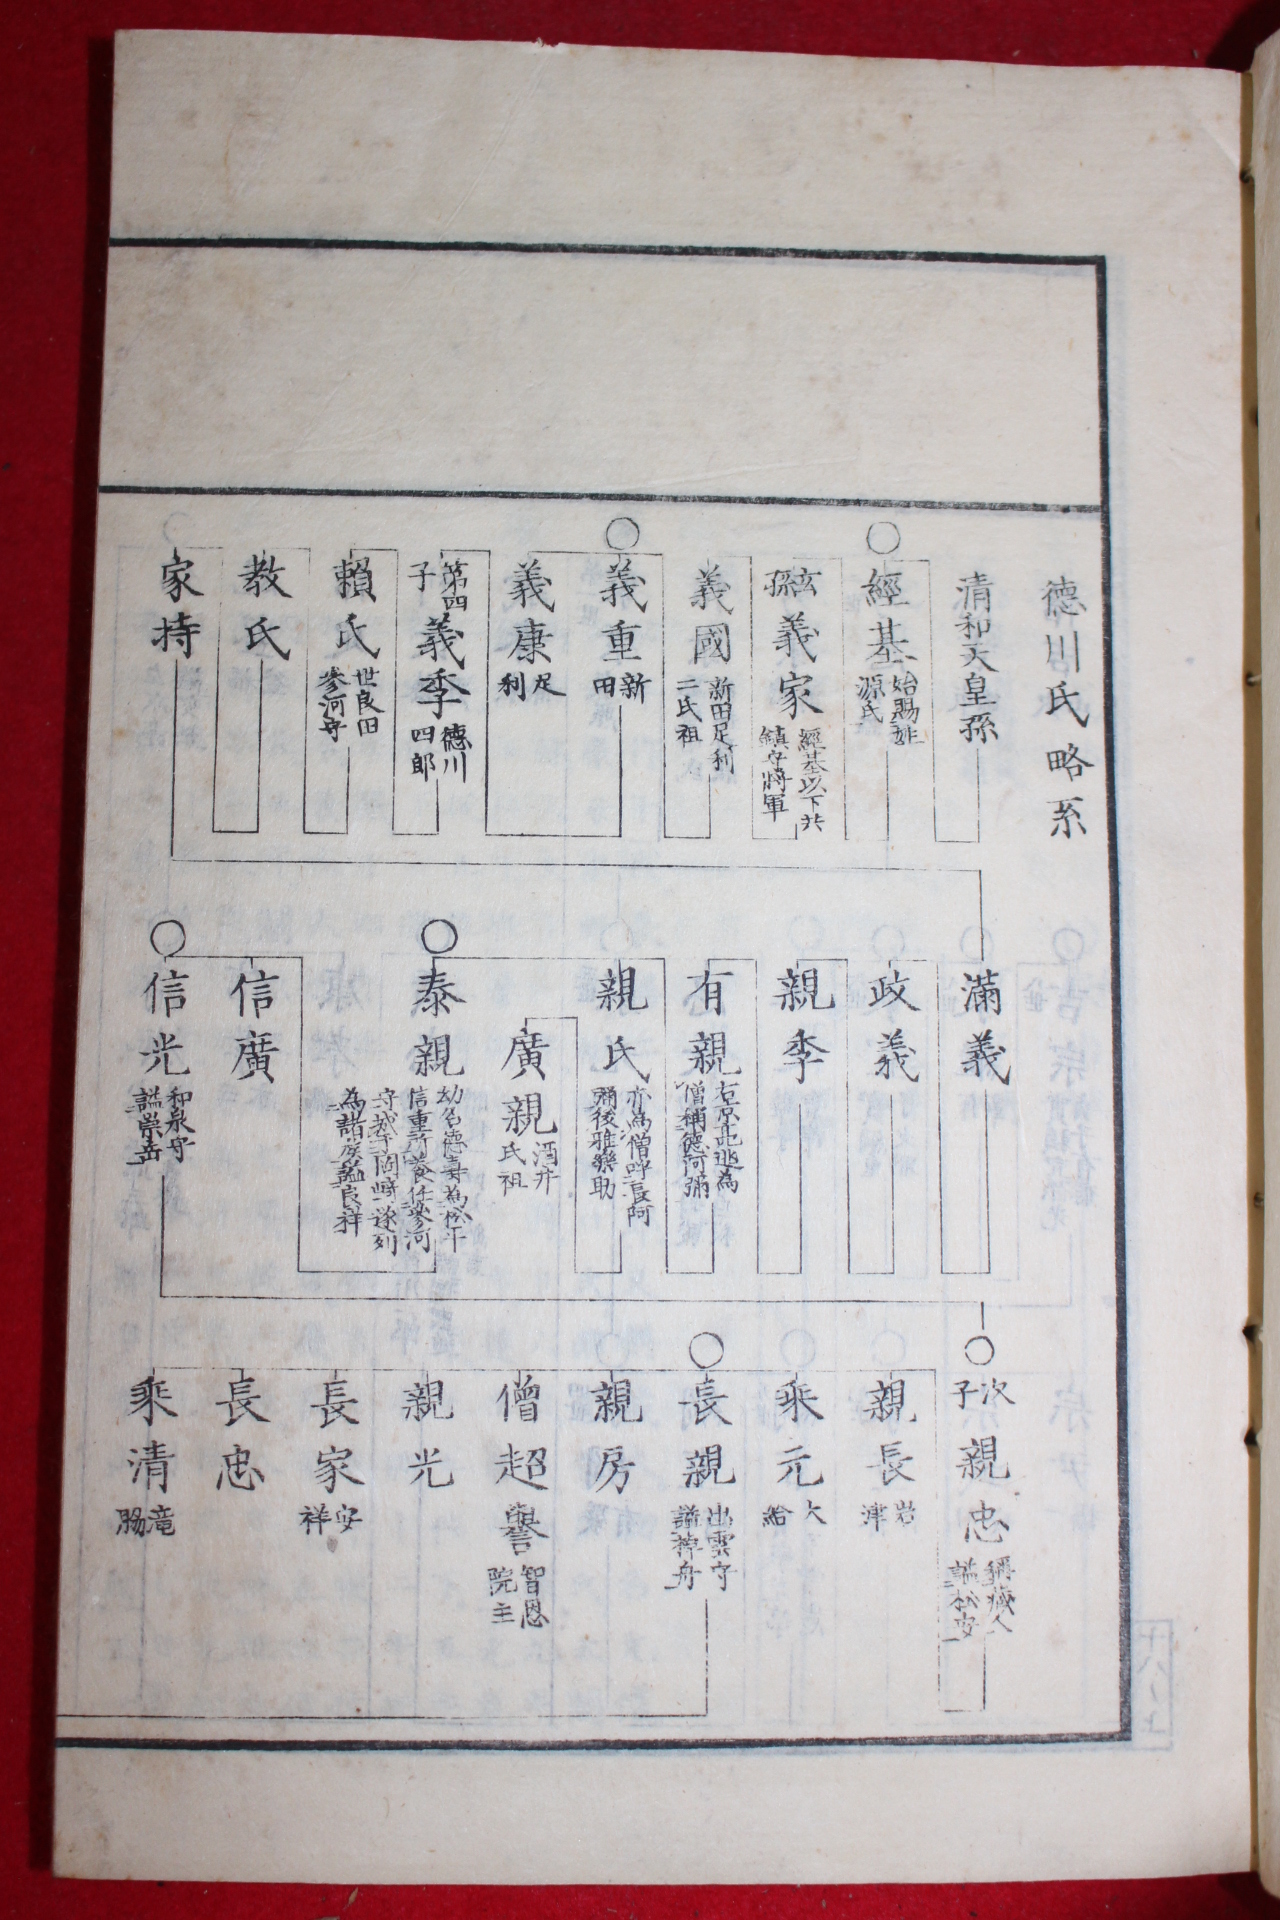 德川氏略系
清和天皇孫
經基 始賜姓源氏
玄孫 義家 經基以下共鎮守將軍
義國 新田足利二氏祖
義重 新田
義康 足利
第四子 義季 德川四郎
賴氏 世良田參河守
教氏
家持
滿義
政義
親季
有親
僧稱德阿彌
親氏 亦為僧呼長阿彌後雅樂助
廣親 酒井氏祖
泰親 幼名德壽為松平信重所養任參河守
為諸族諡良祥
信廣
信光 和泉守諡崇岳
次子 親忠
諡松安
親長 岩津
乘元 大給
長親 出雲守諡棹舟
親房
僧超譽 智恩院主
親光
長家 安祥
長忠
乘清 滝脇